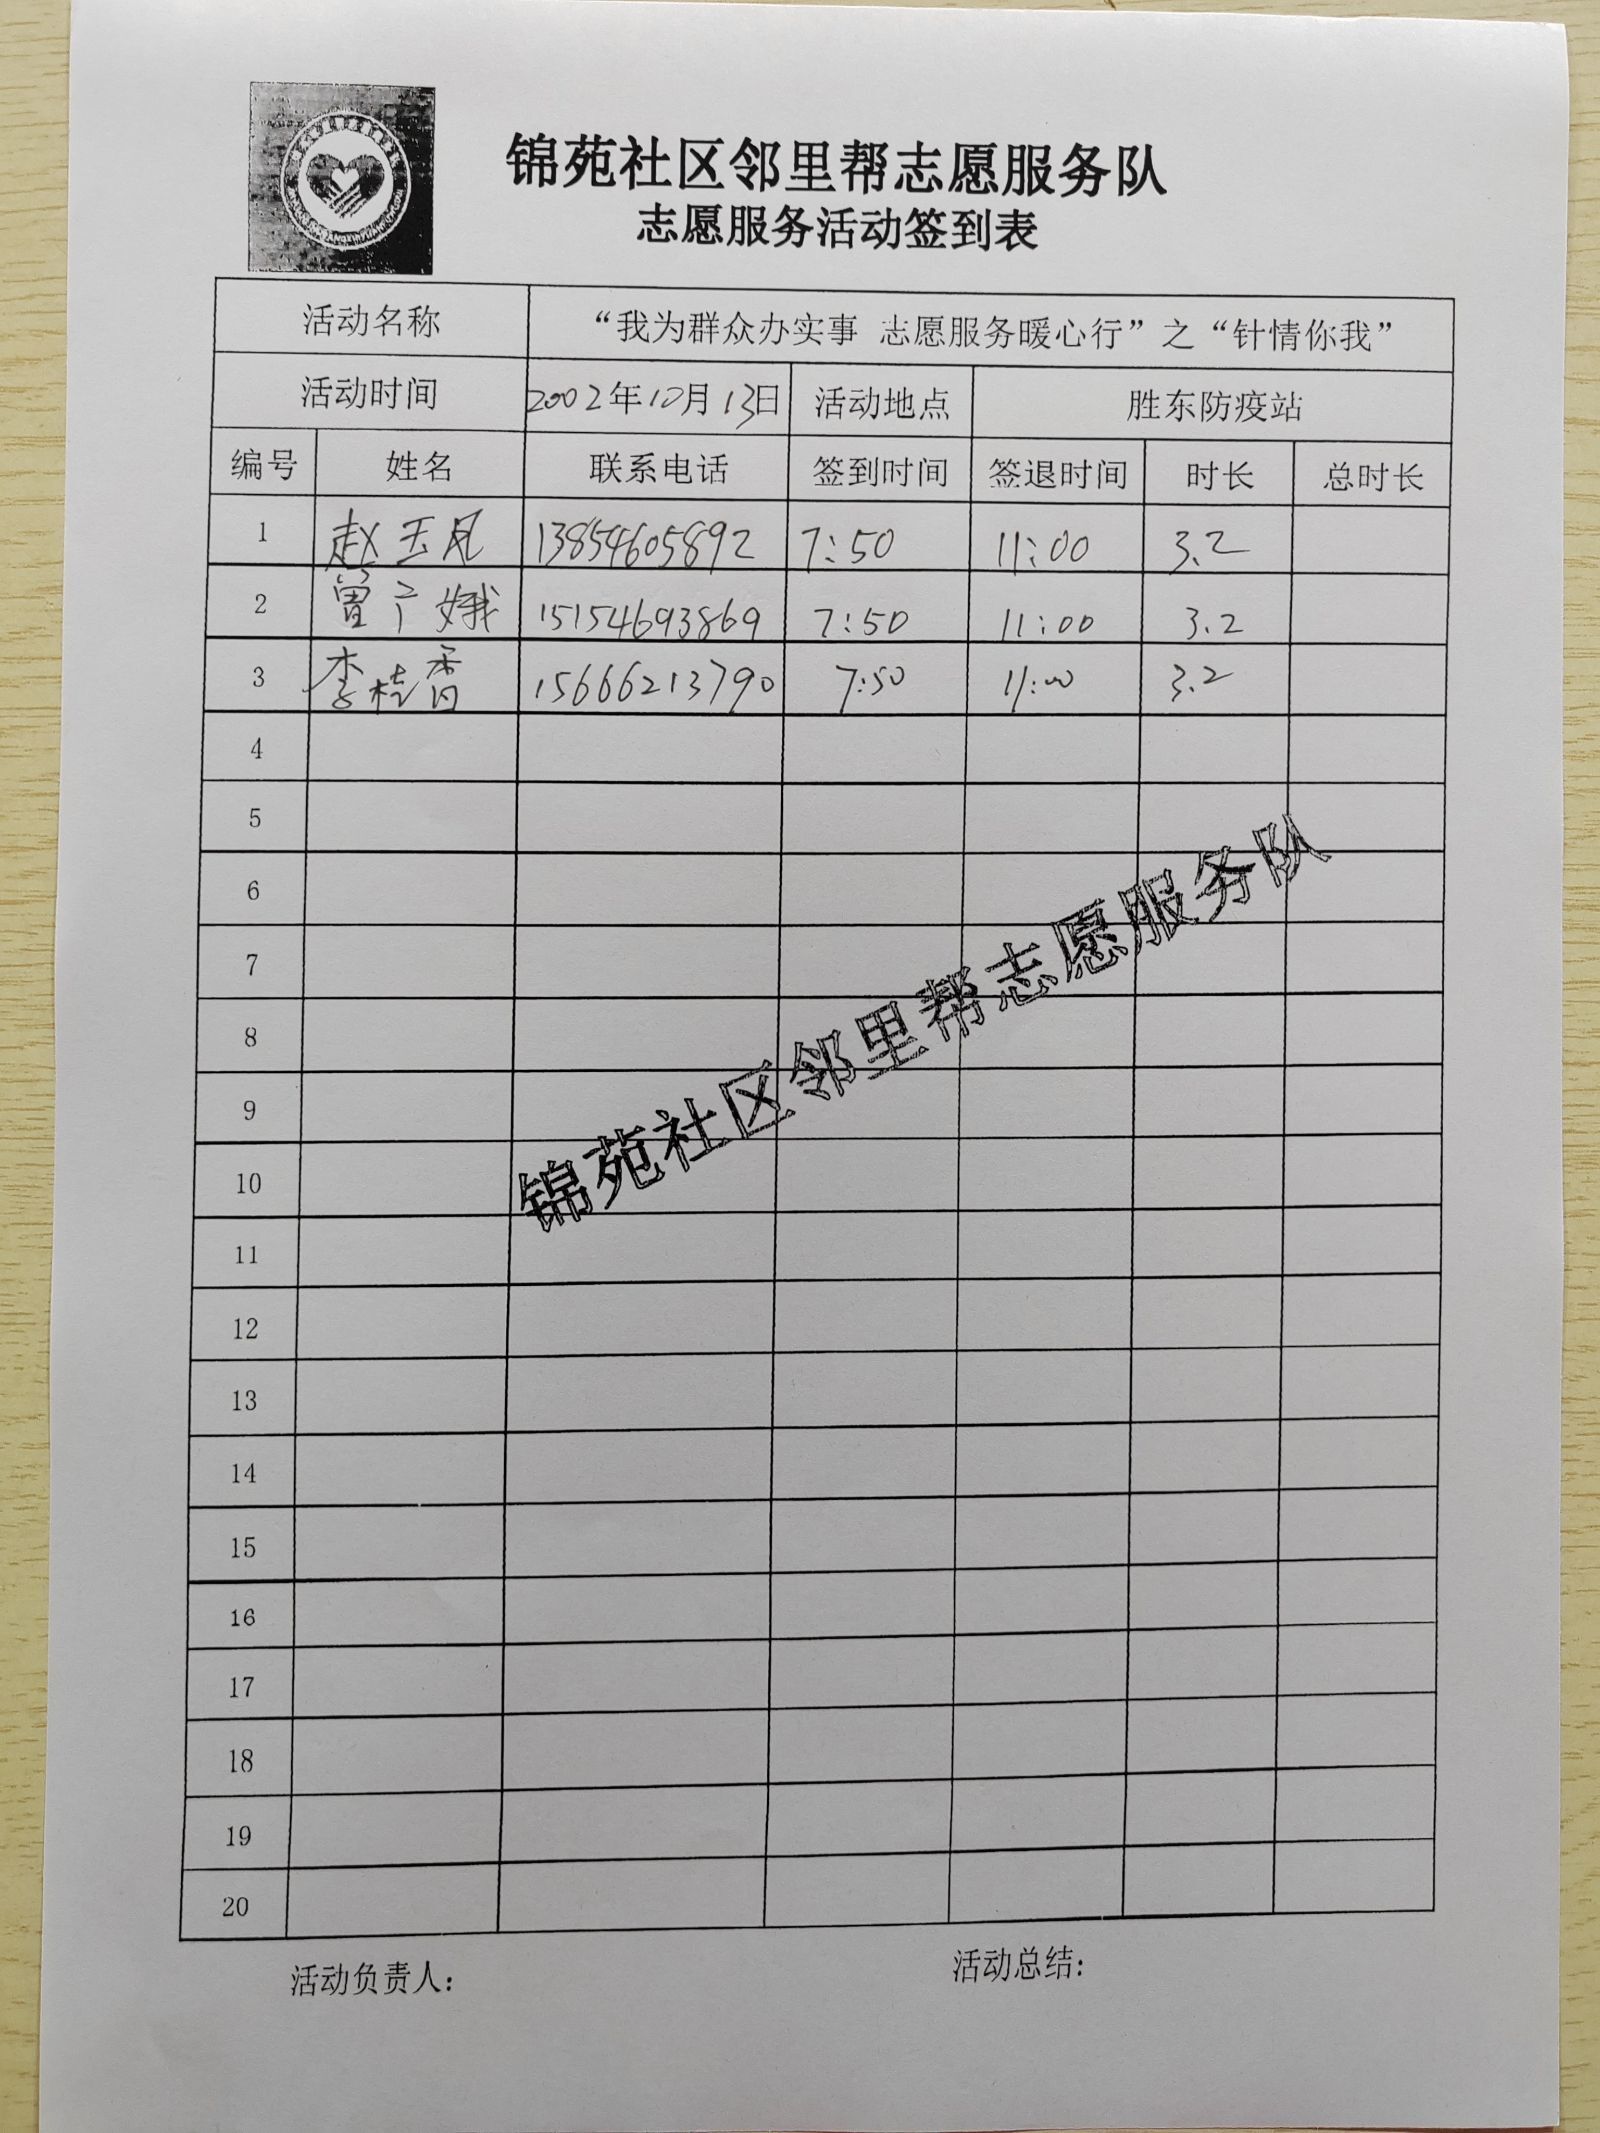 锦苑社区邻里帮志愿服务队
志愿服务活动签到表
活动名称 “我为群众办实事 志愿服务暖心行”之“针情你我”
活动时间 2002年10月13日 活动地点 胜东防疫站
编号 姓名 联系电话 签到时间 签退时间 时长 总时长
1 赵玉凤 13854605892 7:50 11:00 3.2
2 曹广娥 15154693869 7:50 11:00 3.2
3 李桂香 15666213790 7:50 11:00 3.2
4
5
6
7
8
9
10
11
12
13
14
15
16
17
18
19
20
锦苑社区邻里帮志愿服务队
活动负责人: 活动总结: